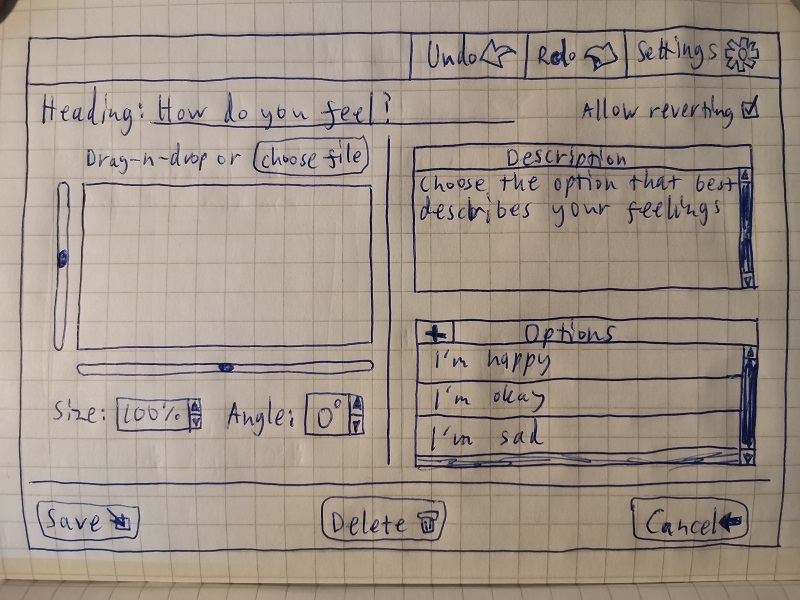 Undo Redo Settings
Heading: How do you feel?
Allow reverting
Drag-n-drop or choose file
Size: 100% Angle: 0°
Description
Choose the option that best
describes your feelings
+ Options
I'm happy
I'm okay
I'm sad
Save Delete Cancel